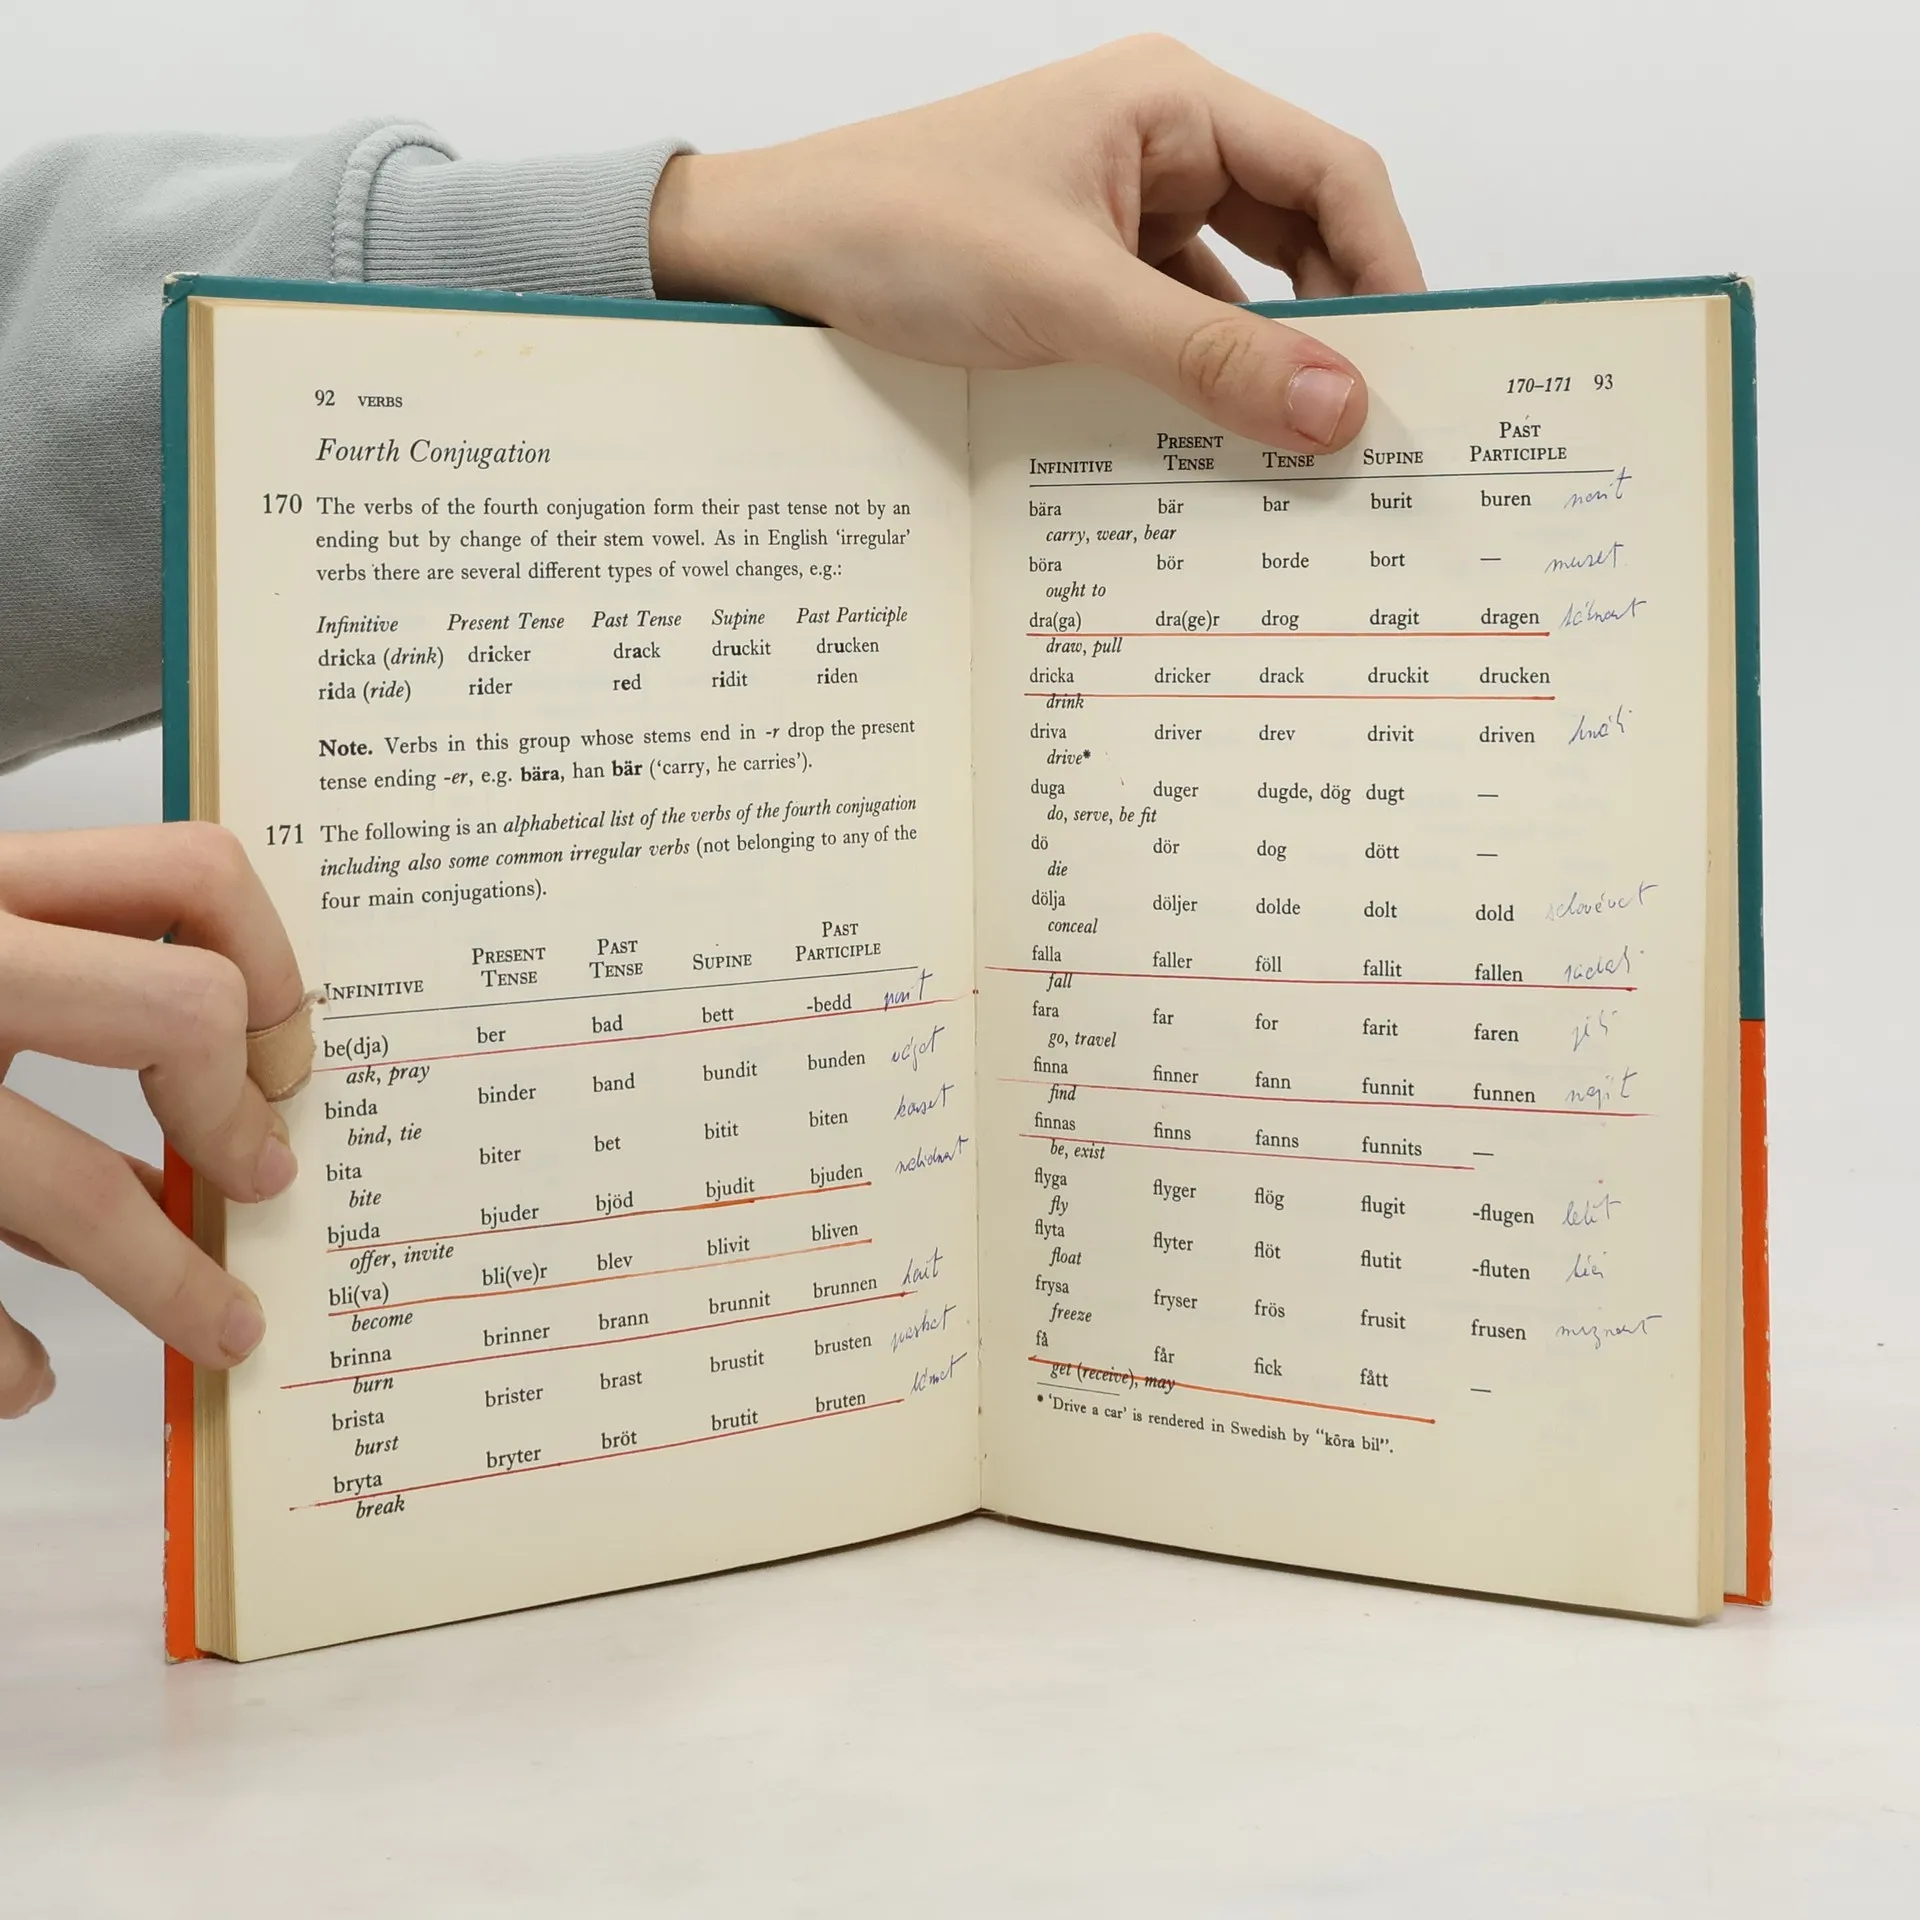 92 VERBS
Fourth Conjugation
170 The verbs of the fourth conjugation form their past tense not by an
ending but by change of their stem vowel. As in English ‘irregular’
verbs there are several different types of vowel changes, e.g.:
Infinitive Present Tense Past Tense Supine Past Participle
dricka (drink) dricker drack druckit drucken
rida (ride) rider red ridit riden
Note. Verbs in this group whose stems end in -r drop the present
tense ending -er, e.g. bära, han bär (‘carry, he carries’).
171 The following is an alphabetical list of the verbs of the fourth conjugation
including also some common irregular verbs (not belonging to any of the
four main conjugations).
INFINITIVE PRESENT TENSE PAST TENSE SUPINE PAST PARTICIPLE
be(dja) ber bad bett -bedd
ask, pray
binda binder band bundit bunden
bind, tie
bita biter bet bitit biten
bite
bjuda bjuder bjöd bjudit bjuden
offer, invite
bli(va) bli(ve)r blev blivit bliven
become
brinna brinner brann brunnit brunnen
burn
brista brister brast brustit brusten
burst
bryta bryter bröt brutit bruten
break
170–171 93
INFINITIVE PRESENT TENSE TENSE SUPINE PAST PARTICIPLE
bära bär bar burit buren
carry, wear, bear
böra bör borde bort — muset
ought to
dra(ga) dra(ge)r drog dragit dragen
draw, pull
dricka dricker drack druckit drucken
drink
driva driver drev drivit driven
drive*
duga duger dugde, dög dugt —
do, serve, be fit
dö dör dog dött —
die
dölja döljer dolde dolt dold
conceal
falla faller föll fallit fallen
fall
fara far for farit faren
go, travel
finna finner fann funnit funnen najít
find
finnas finns fanns funnits —
be, exist
flyga flyger flög flugit -flugen letět
fly
flyta flyter flöt flutit -fluten
float
frysa fryser frös frusit frusen mrznout
freeze
få får fick fått —
get (receive), may
* ‘Drive a car’ is rendered in Swedish by “köra bil”.